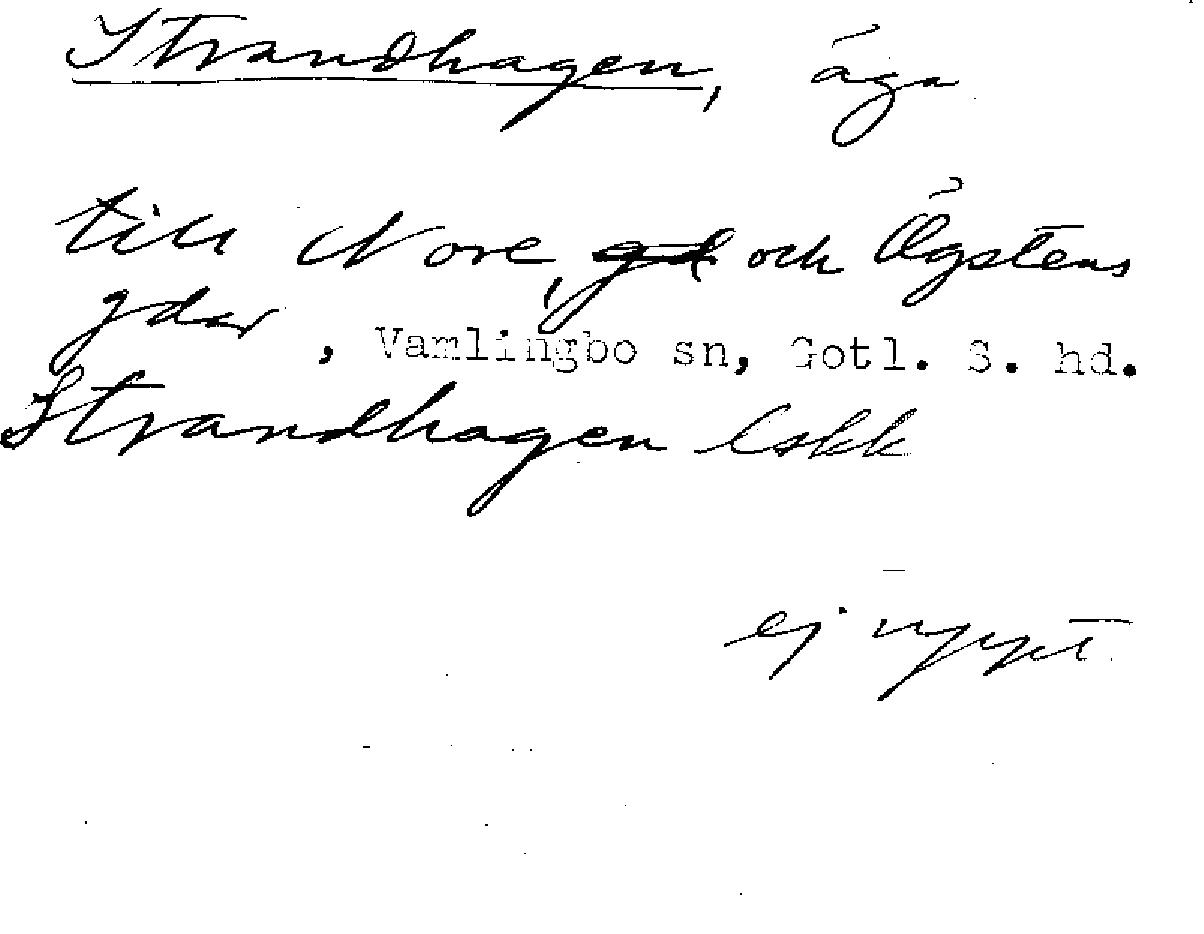 Strandhagen, äga
till Nore, gd och Ögstens
gdar, Vamlingbo sn, Gotl. S. hd.
Strandhagen Eskk
ej uppt.